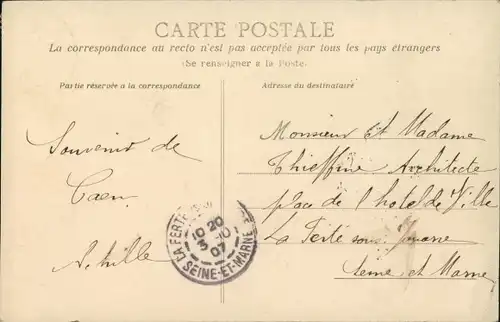 CARTE POSTALE
La correspondance au recto n'est pas acceptée par tous les pays étrangers
(Se renseigner à la Poste.
Partie réservée à la correspondance
Adresse du destinataire
Souvenir de
Caen
Achille
Monsieur et Madame
Thieffine Architecte
place de l'hotel de Ville
La Ferté sous Jouarre
Seine et Marne
LA FERTE
10 20
3 -10
07
SEINE-ET-MARNE